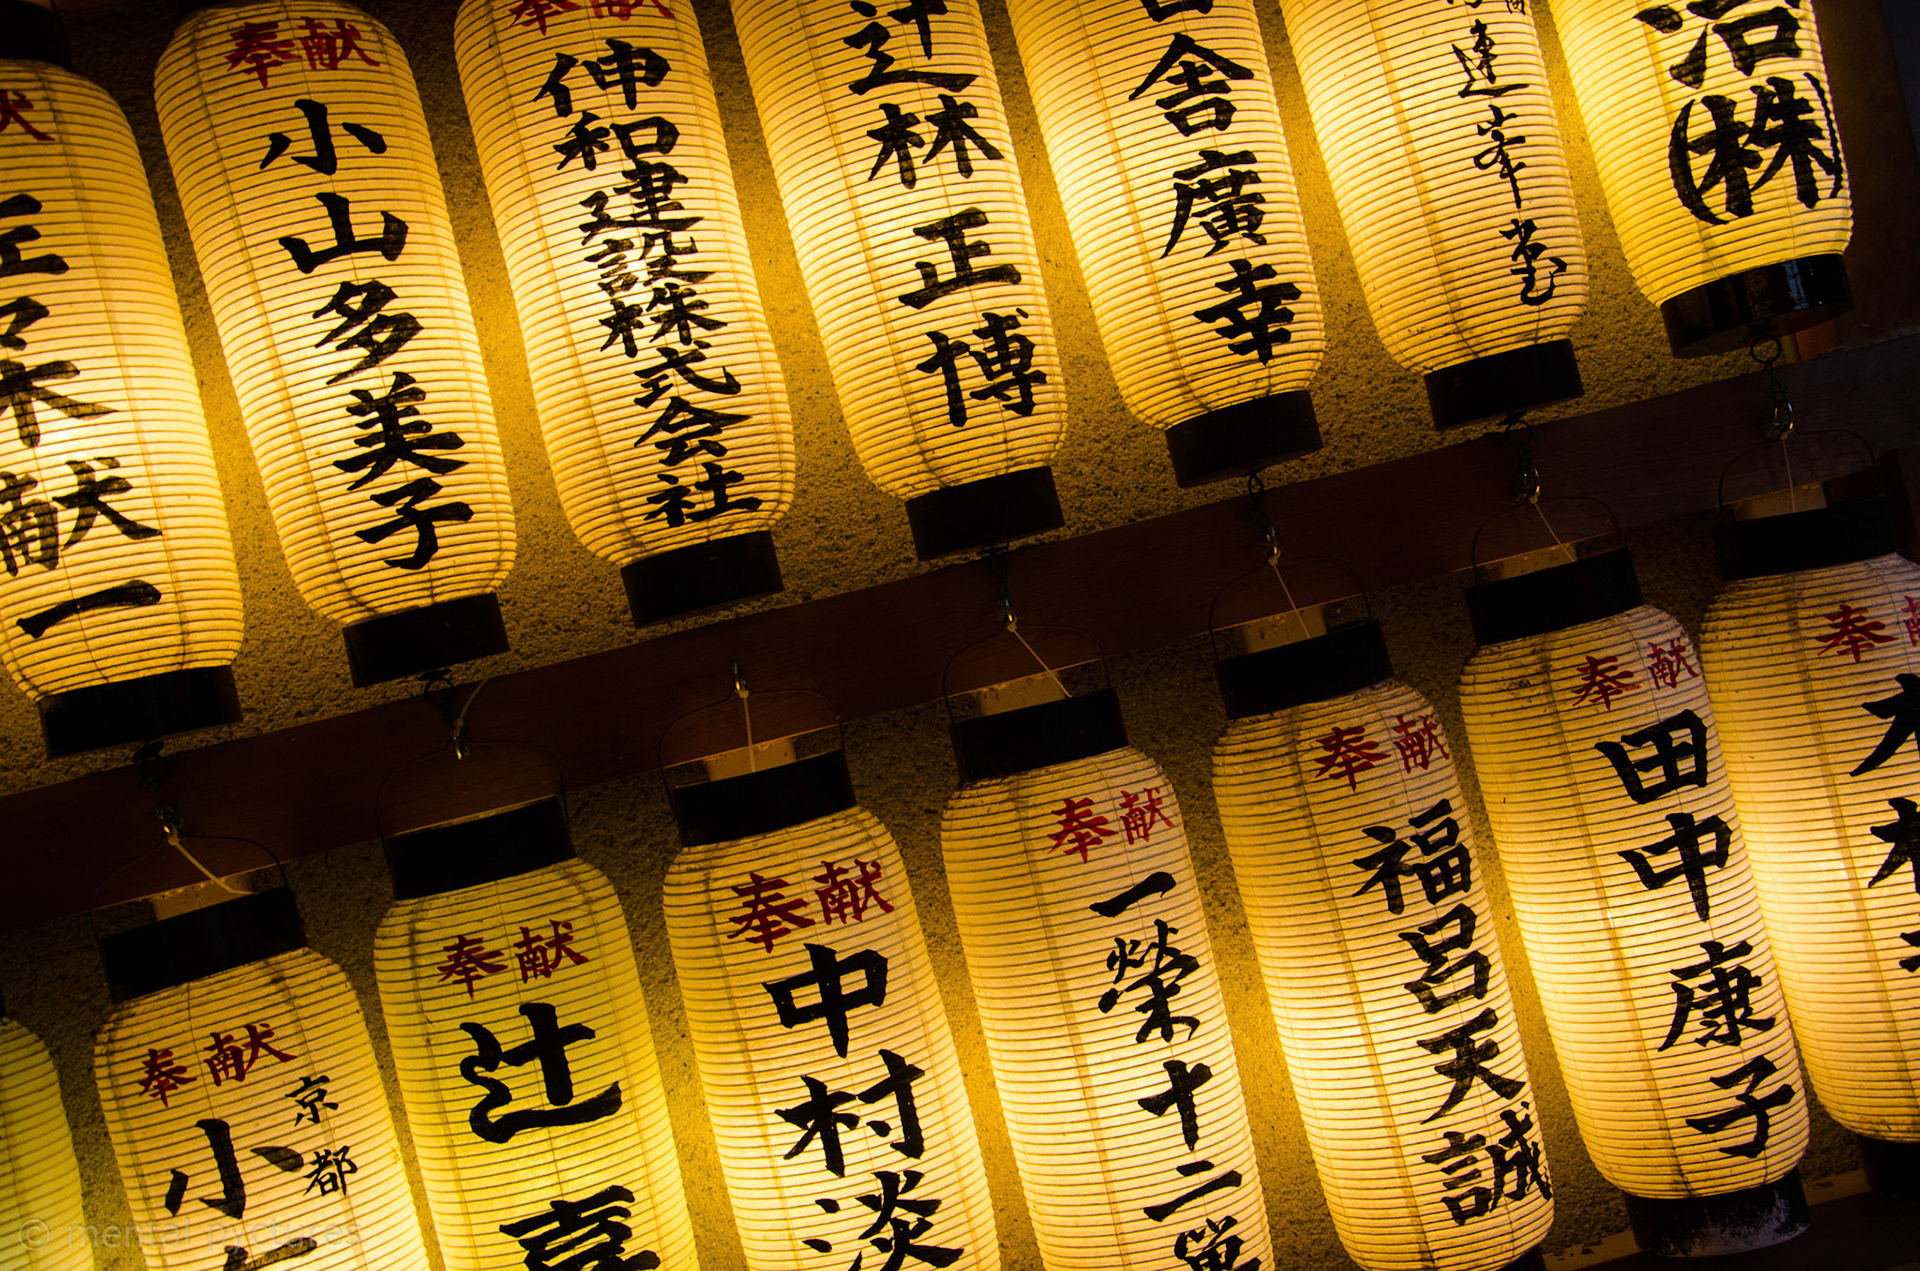 献一
奉献
小山多美子
奉献
伸和建設株式会社
辻林正博
舎廣幸
治(株)
奉献
京都
小
奉献
辻
奉献
中村淡
奉献
一榮十二
奉献
福呂天誠
奉献
田中康子
奉献